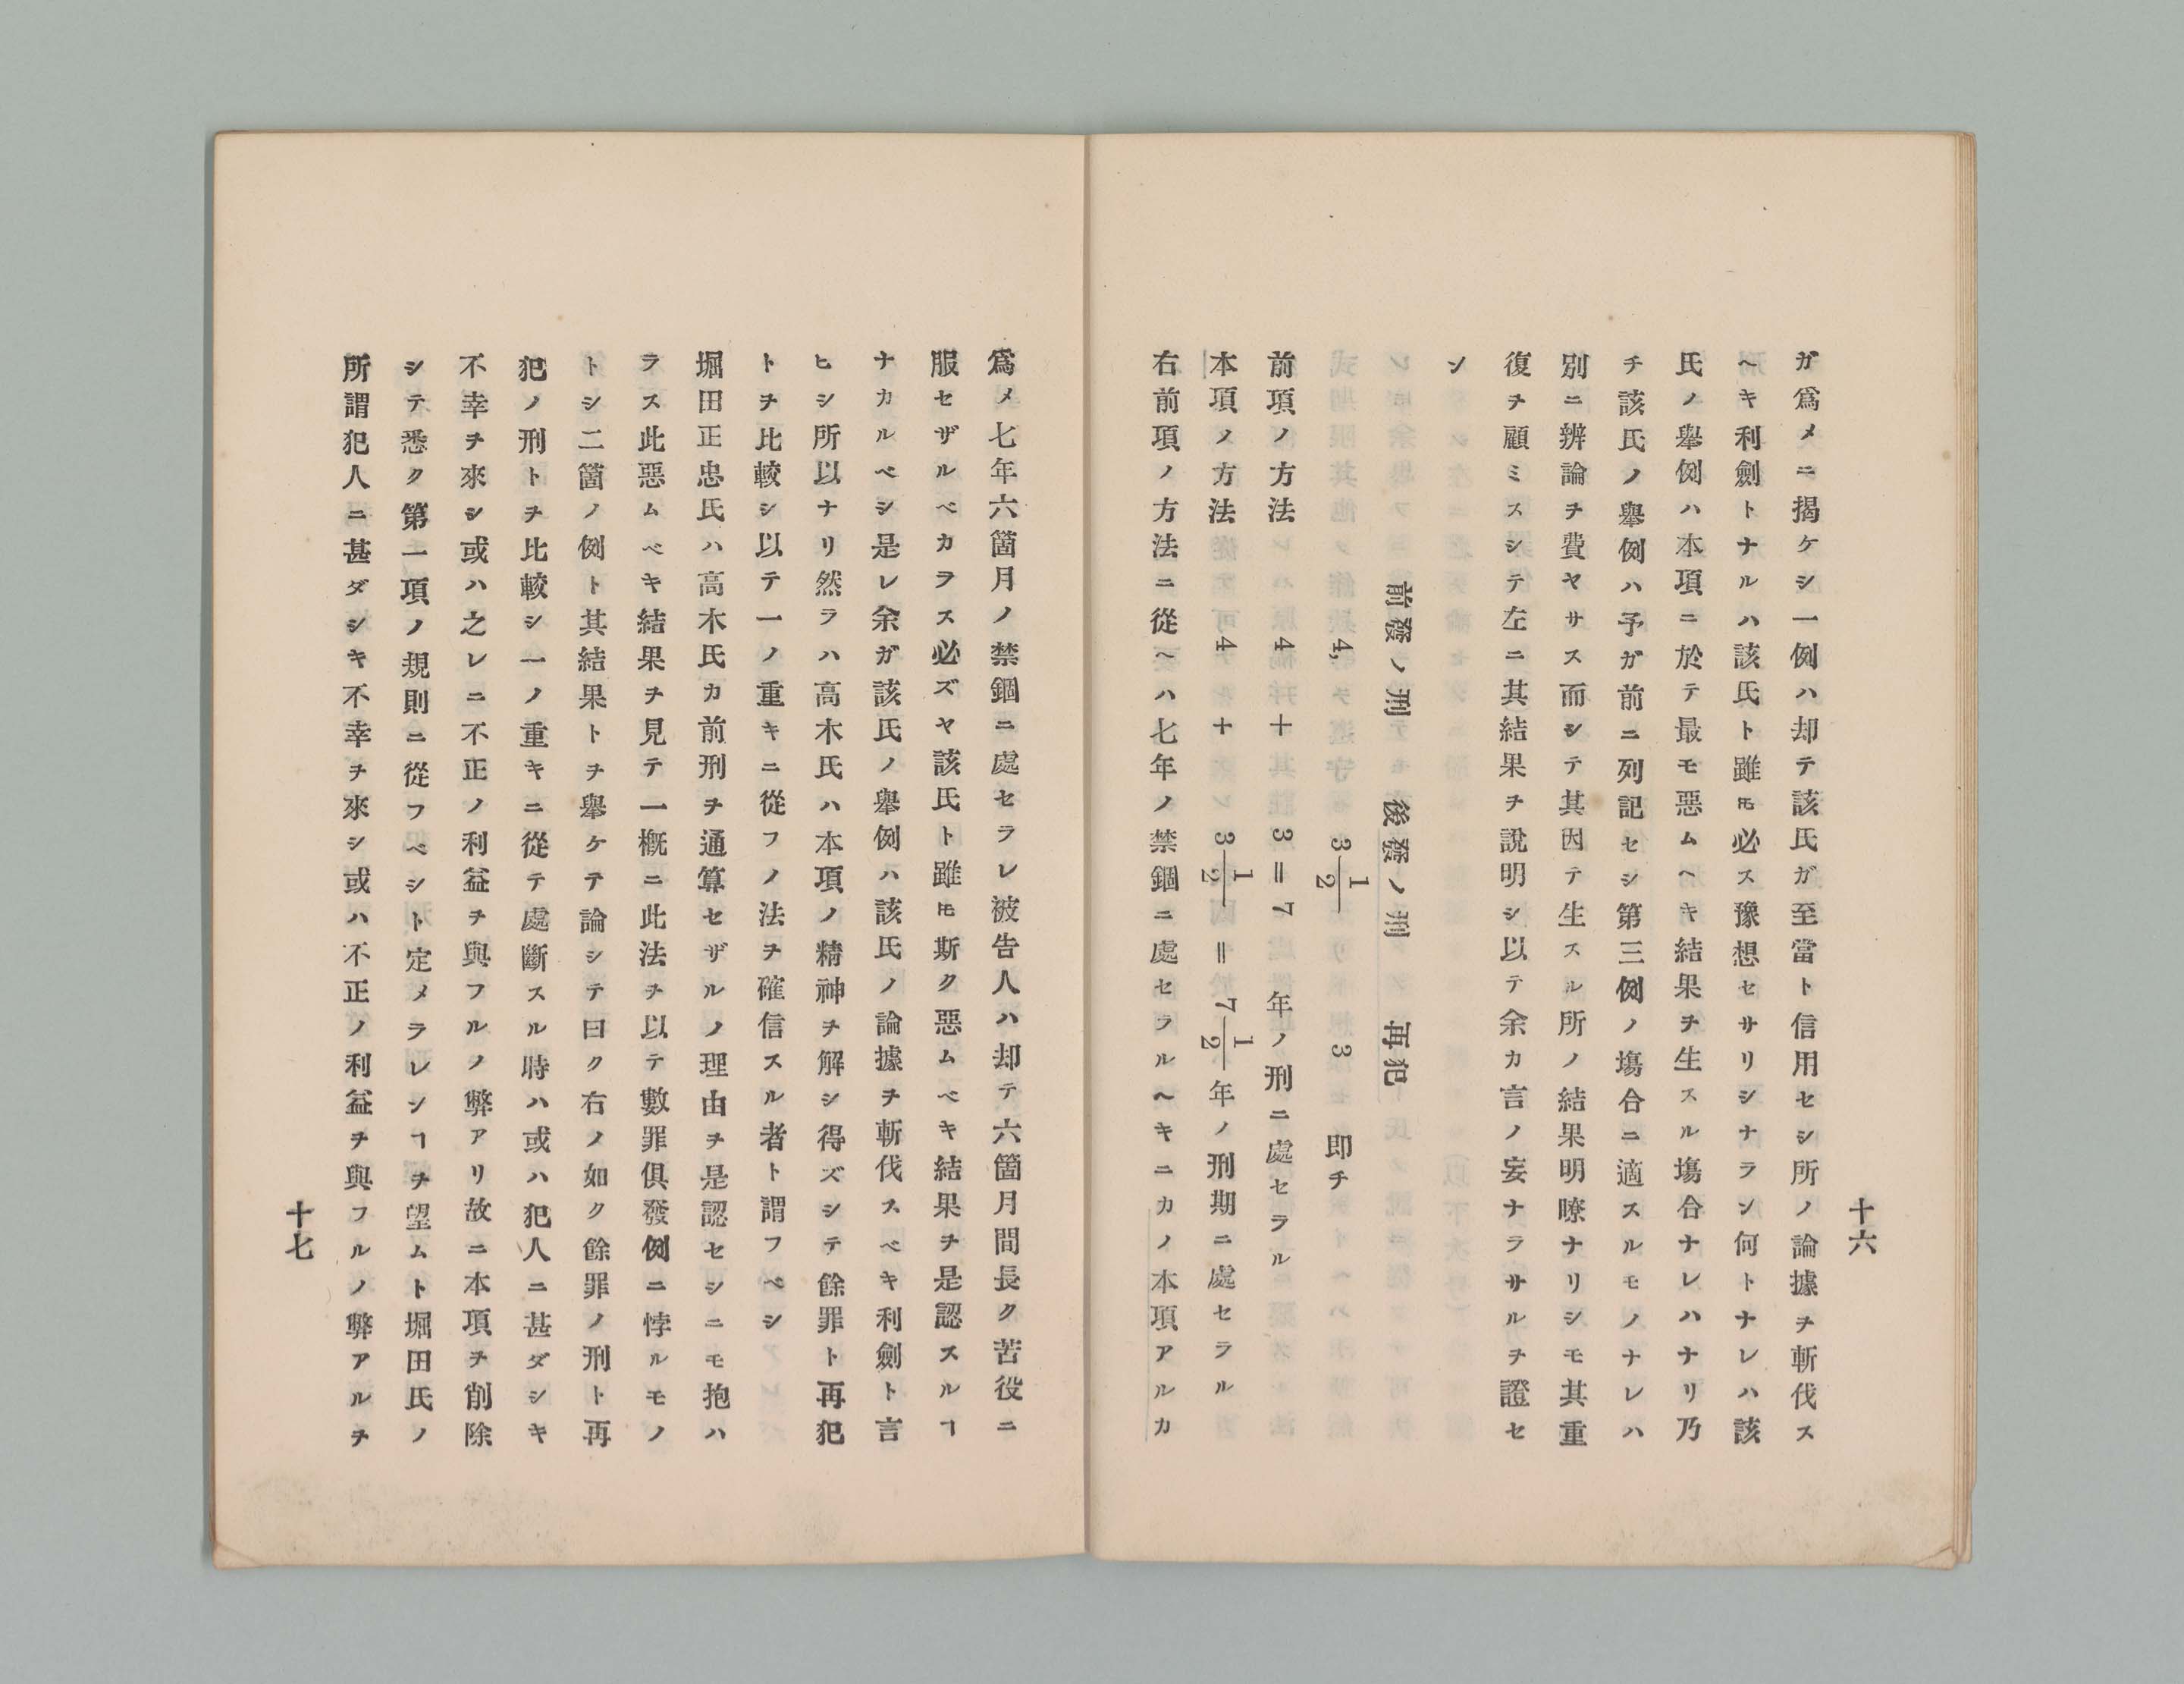 十六
ガ爲メニ揭ケシ一例ハ却テ該氏ガ至當ト信用セシ所ノ論據ヲ斬伐ス
ヘキ利劍トナルハ該氏ト雖𪜈必ス豫想セサリシナラン何トナレハ該
氏ノ擧例ハ本項ニ於テ最モ惡ムヘキ結果ヲ生スル塲合ナレハナリ乃
チ該氏ノ擧例ハ予ガ前ニ列記セシ第三例ノ塲合ニ適スルモノナレハ
別ニ辨論ヲ費ヤサス而シテ其因テ生スル所ノ結果明瞭ナリシモ其重
復ヲ顧ミスシテ左ニ其結果ヲ說明シ以テ余カ言ノ妄ナラサルヲ證セ
ン
前發ノ刑 後發ノ刑 再犯
4, 3 1/2 3 即チ
前項ノ方法 4 + 3 = 7 年ノ刑ニ處セラル
本項ノ方法 4 + 3 1/2 = 7 1/2 年ノ刑期ニ處セラル
右前項ノ方法ニ從ヘハ七年ノ禁錮ニ處セラルヘキニカノ本項アルカ
爲メ七年六箇月ノ禁錮ニ處セラレ被告人ハ却テ六箇月間長ク苦役ニ
服セザルベカラス必ズヤ該氏ト雖𪜈斯ク惡ムベキ結果ヲ是認スルヿ
ナカルベシ是レ余ガ該氏ノ擧例ハ該氏ノ論據ヲ斬伐スベキ利劍ト言
ヒシ所以ナリ然ラハ高木氏ハ本項ノ精神ヲ解シ得ズシテ餘罪ト再犯
トヲ比較シ以テ一ノ重キニ從フノ法ヲ確信スル者ト謂フベシ
堀田正忠氏ハ高木氏カ前刑ヲ通算セザルノ理由ヲ是認セシニモ抱ハ
ラス此惡ムベキ結果ヲ見テ一槪ニ此法ヲ以テ數罪俱發例ニ悖ルモノ
トシ二箇ノ例ト其結果トヲ擧ケテ論シテ曰ク右ノ如ク餘罪ノ刑ト再
犯ノ刑トヲ比較シ一ノ重キニ從テ處斷スル時ハ或ハ犯人ニ甚ダシキ
不幸ヲ來シ或ハ之レニ不正ノ利益ヲ與フルノ弊アリ故ニ本項ヲ削除
シテ悉ク第一項ノ規則ニ從フベシト定メラレンヿヲ望ムト堀田氏ノ
所謂犯人ニ甚ダシキ不幸ヲ來シ或ハ不正ノ利益ヲ與フルノ弊アルヲ
十七